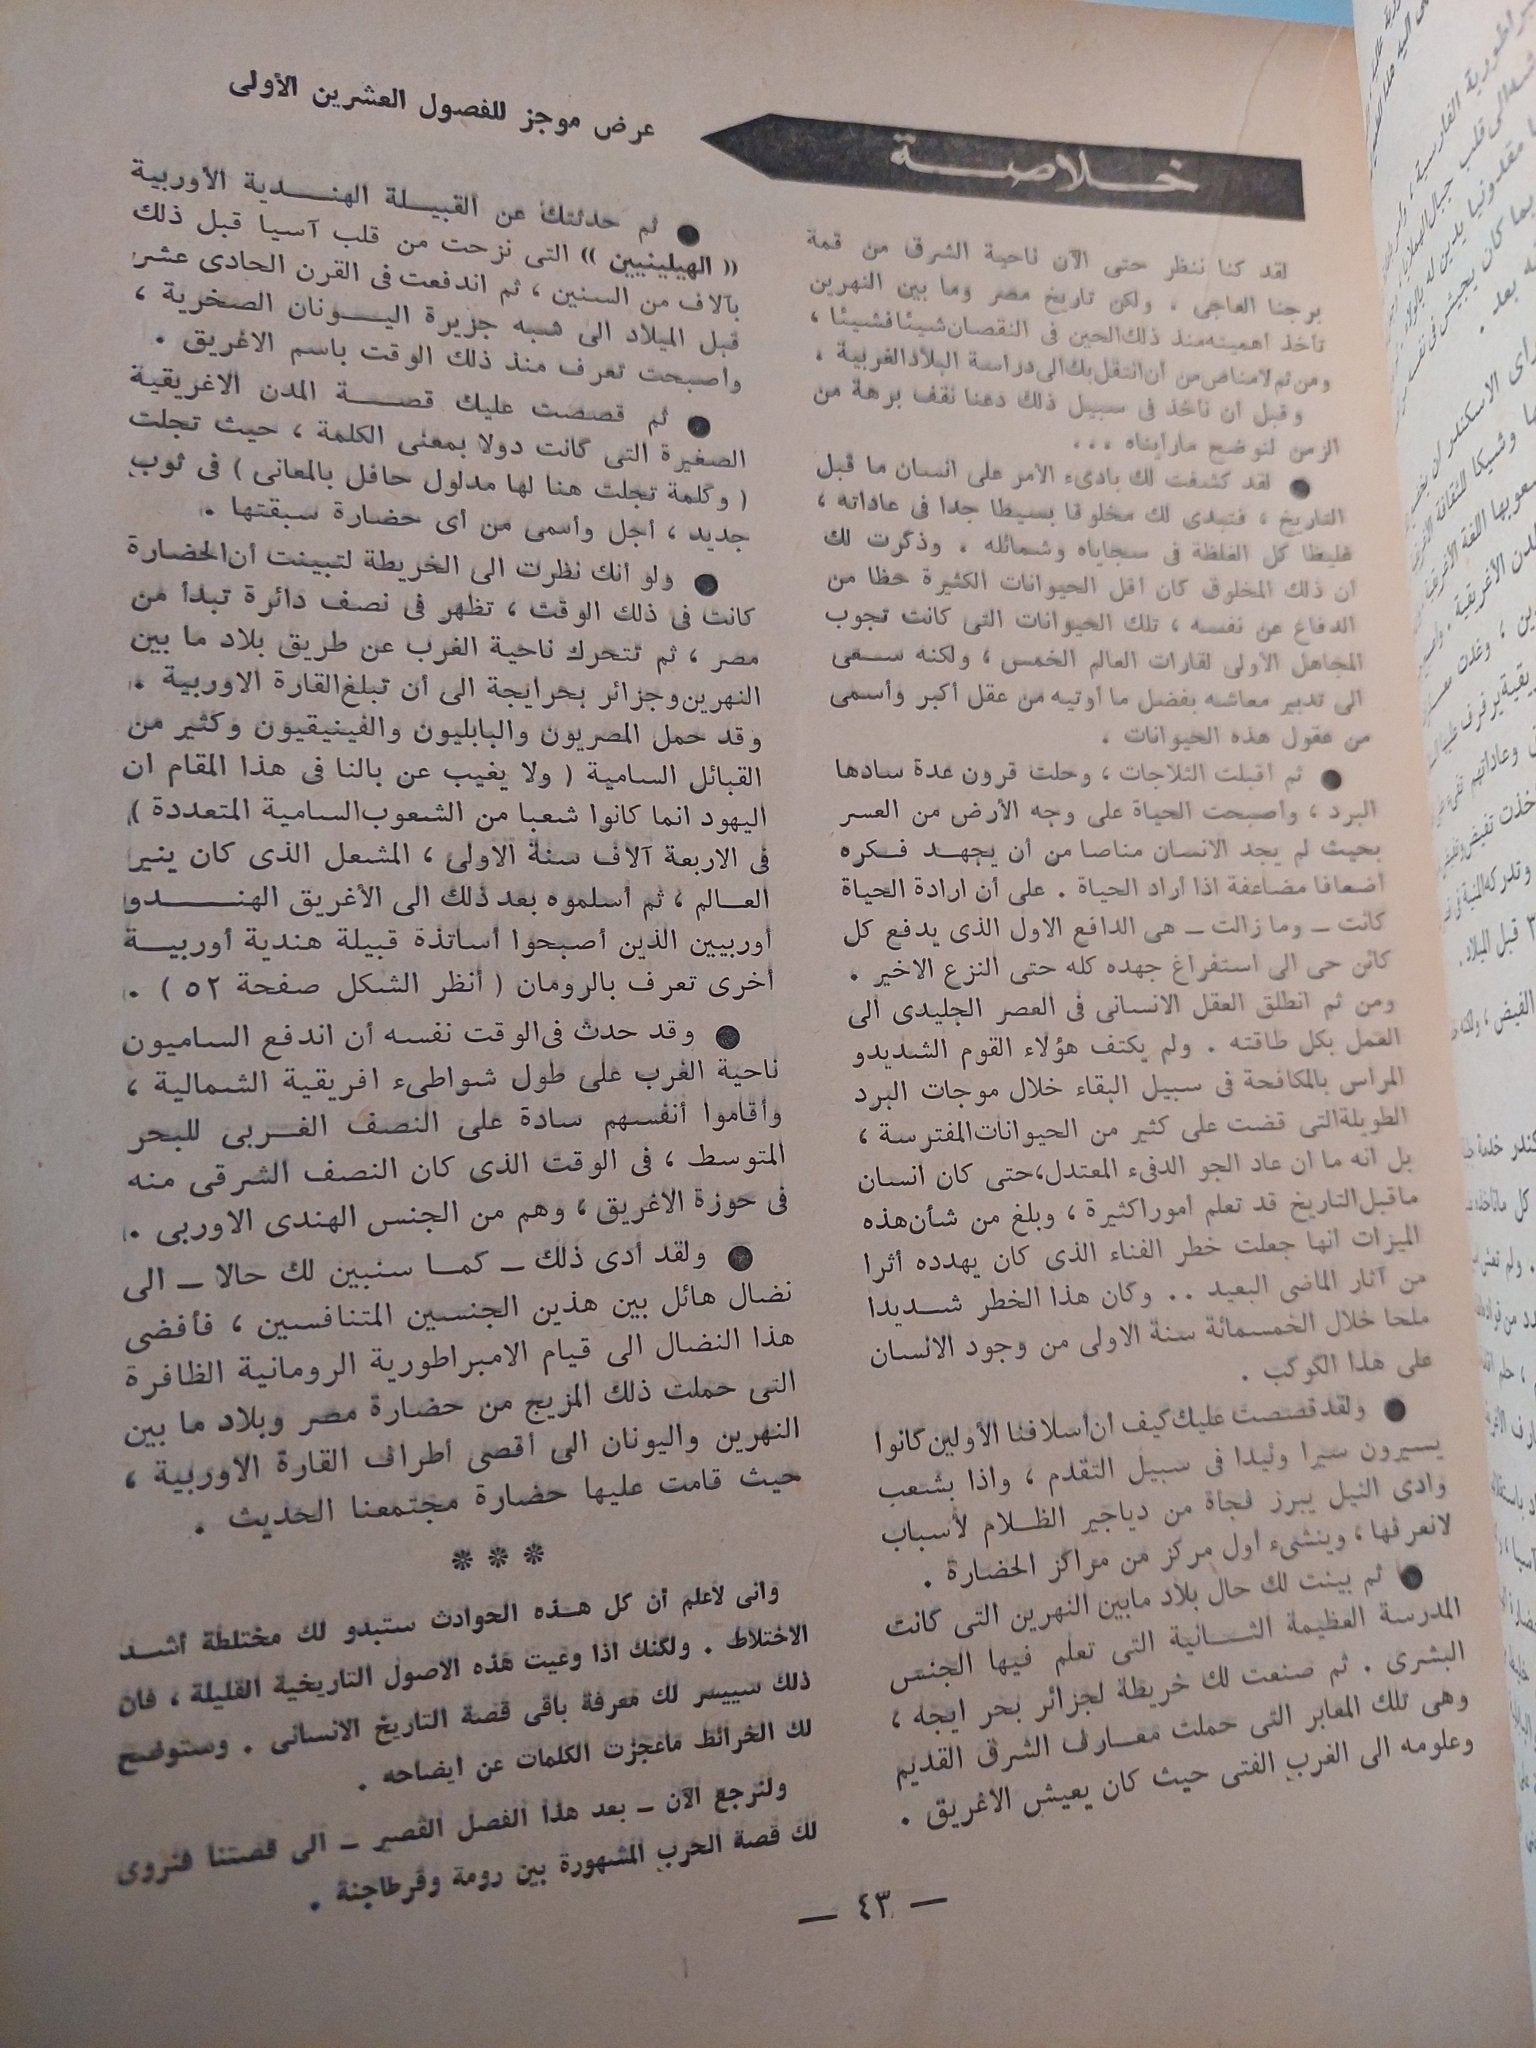 خلاصة
عرض موجز للفصول العشرين الأولى
لقد كنا ننظر حتى الآن ناحية الشرق من قمة
برجنا العاجى . ولكن تاريخ مصر وما بين النهرين
تأخذ أهميته منذ ذلك الحين فى النقصان شيئا فشيئا ،
ومن ثم لا مناص من أن أنتقل بك الى دراسة البلاد الغربية .
وقبل أن نأخذ فى سبيل ذلك دعنا نقف برهة من
الزمن لنوضح مارأيناه ...
● لقد كشفت لك بادىء الأمر على انسان ما قبل
التاريخ ، فتبدى لك مخلوقا بسيطا جدا فى عاداته ،
غليظا كل الغلظة فى سجاياه وشمائله . وذكرت لك
أن ذلك المخلوق كان أقل الحيوانات الكثيرة حظا من
الدفاع عن نفسه ، تلك الحيوانات التى كانت تجوب
المجاهل الأولى لقارات العالم الخمس ، ولكنه سعى
الى تدبير معاشه بفضل ما أوتيه من عقل أكبر وأسمى
من عقول هذه الحيوانات .
● ثم أقبلت الثلاجات ، وحلت قرون عدة سادها
البرد ، وأصبحت الحياة على وجه الأرض من العسر
بحيث لم يجد الانسان مناصا من أن يجهد فكره
أضعافا مضاعفة اذا أراد الحياة . على أن ارادة الحياة
كانت – وما زالت – هى الدافع الاول الذى يدفع كل
كائن حى الى استفراغ جهده كله حتى النزع الاخير .
ومن ثم انطلق العقل الانسانى فى العصر الجليدى الى
العمل بكل طاقته . ولم يكتف هؤلاء القوم الشديدو
المراس بالمكافحة فى سبيل البقاء خلال موجات البرد
الطويلة التى قضت على كثير من الحيوانات المفترسة ،
بل انه ما ان عاد الجو الدفىء المعتدل، حتى كان انسان
ماقبل التاريخ قد تعلم أمورا كثيرة ، وبلغ من شأن هذه
الميزات انها جعلت خطر الفناء الذى كان يهدده أثرا
من آثار الماضى البعيد .. وكان هذا الخطر شديدا
ملحا خلال الخمسمائة سنة الاولى من وجود الانسان
على هذا الكوكب .
● ولقد قصصت عليك كيف أن أسلافنا الأولين كانوا
يسيرون سيرا وئيدا فى سبيل التقدم ، واذا بشعب
وادى النيل يبرز فجأة من دياجير الظلام لأسباب
لانعرفها ، وينشىء أول مركز من مراكز الحضارة .
● ثم بينت لك حال بلاد مابين النهرين التى كانت
المدرسة العظيمة الثانية التى تعلم فيها الجنس
البشرى . ثم صنعت لك خريطة لجزائر بحر ايجه ،
وهى تلك المعابر التى حملت معارف الشرق القديم
وعلومه الى الغرب الفتى حيث كان يعيش الاغريق .
● ثم حدثتك عن القبيلة الهندية الأوربية
« الهيلينيين » التى نزحت من قلب آسيا قبل ذلك
بآلاف من السنين ، ثم اندفعت فى القرن الحادى عشر
قبل الميلاد الى شبه جزيرة اليونان الصخرية ،
وأصبحت تعرف منذ ذلك الوقت باسم الاغريق .
● ثم قصصت عليك قصة المدن الاغريقية
الصغيرة التى كانت دولا بمعنى الكلمة ، حيث تجلت
( وكلمة تجلت هنا لها مدلول حافل بالمعانى ) فى ثوب
جديد ، أجل وأسمى من أى حضارة سبقتها .
● ولو أنك نظرت الى الخريطة لتبينت أن الحضارة
كانت فى ذلك الوقت ، تظهر فى نصف دائرة تبدأ من
مصر ، ثم تتحرك ناحية الغرب عن طريق بلاد ما بين
النهرين وجزائر بحرايجة الى أن تبلغ القارة الاوربية .
وقد حمل المصريون والبابليون والفينيقيون وكثير من
القبائل السامية ( ولا يغيب عن بالنا فى هذا المقام ان
اليهود انما كانوا شعبا من الشعوب السامية المتعددة )
فى الاربعة آلاف سنة الاولى ، المشعل الذى كان ينير
العالم ، ثم أسلموه بعد ذلك الى الأغريق الهندو
أوربيين الذين أصبحوا أساتذة قبيلة هندية أوربية
أخرى تعرف بالرومان ( أنظر الشكل صفحة ٥٢ ) .
● وقد حدث فى الوقت نفسه أن اندفع الساميون
ناحية الغرب على طول شواطىء افريقية الشمالية ،
وأقاموا أنفسهم سادة على النصف الغربى للبحر
المتوسط ، فى الوقت الذى كان النصف الشرقى منه
فى حوزة الاغريق ، وهم من الجنس الهندى الاوربى .
● ولقد أدى ذلك – كما سنبين لك حالا – الى
نضال هائل بين هذين الجنسين المتنافسين ، فأفضى
هذا النضال الى قيام الامبراطورية الرومانية الظافرة
التى حملت ذلك المزيج من حضارة مصر وبلاد ما بين
النهرين واليونان الى أقصى أطراف القارة الاوربية ،
حيث قامت عليها حضارة مجتمعنا الحديث .
* * *
وانى لأعلم أن كل هذه الحوادث ستبدو لك مختلطة أشد
الاختلاط . ولكنك اذا وعيت هذه الاصول التاريخية القليلة ، فان
ذلك سييسر لك معرفة باقى قصة التاريخ الانسانى . وستوضح
لك الخرائط ماعجزت الكلمات عن ايضاحه .
ولنرجع الآن – بعد هذا الفصل القصير – الى قصتنا فنروى
لك قصة الحرب المشهورة بين رومة وقرطاجنة .
— ٤٣ —